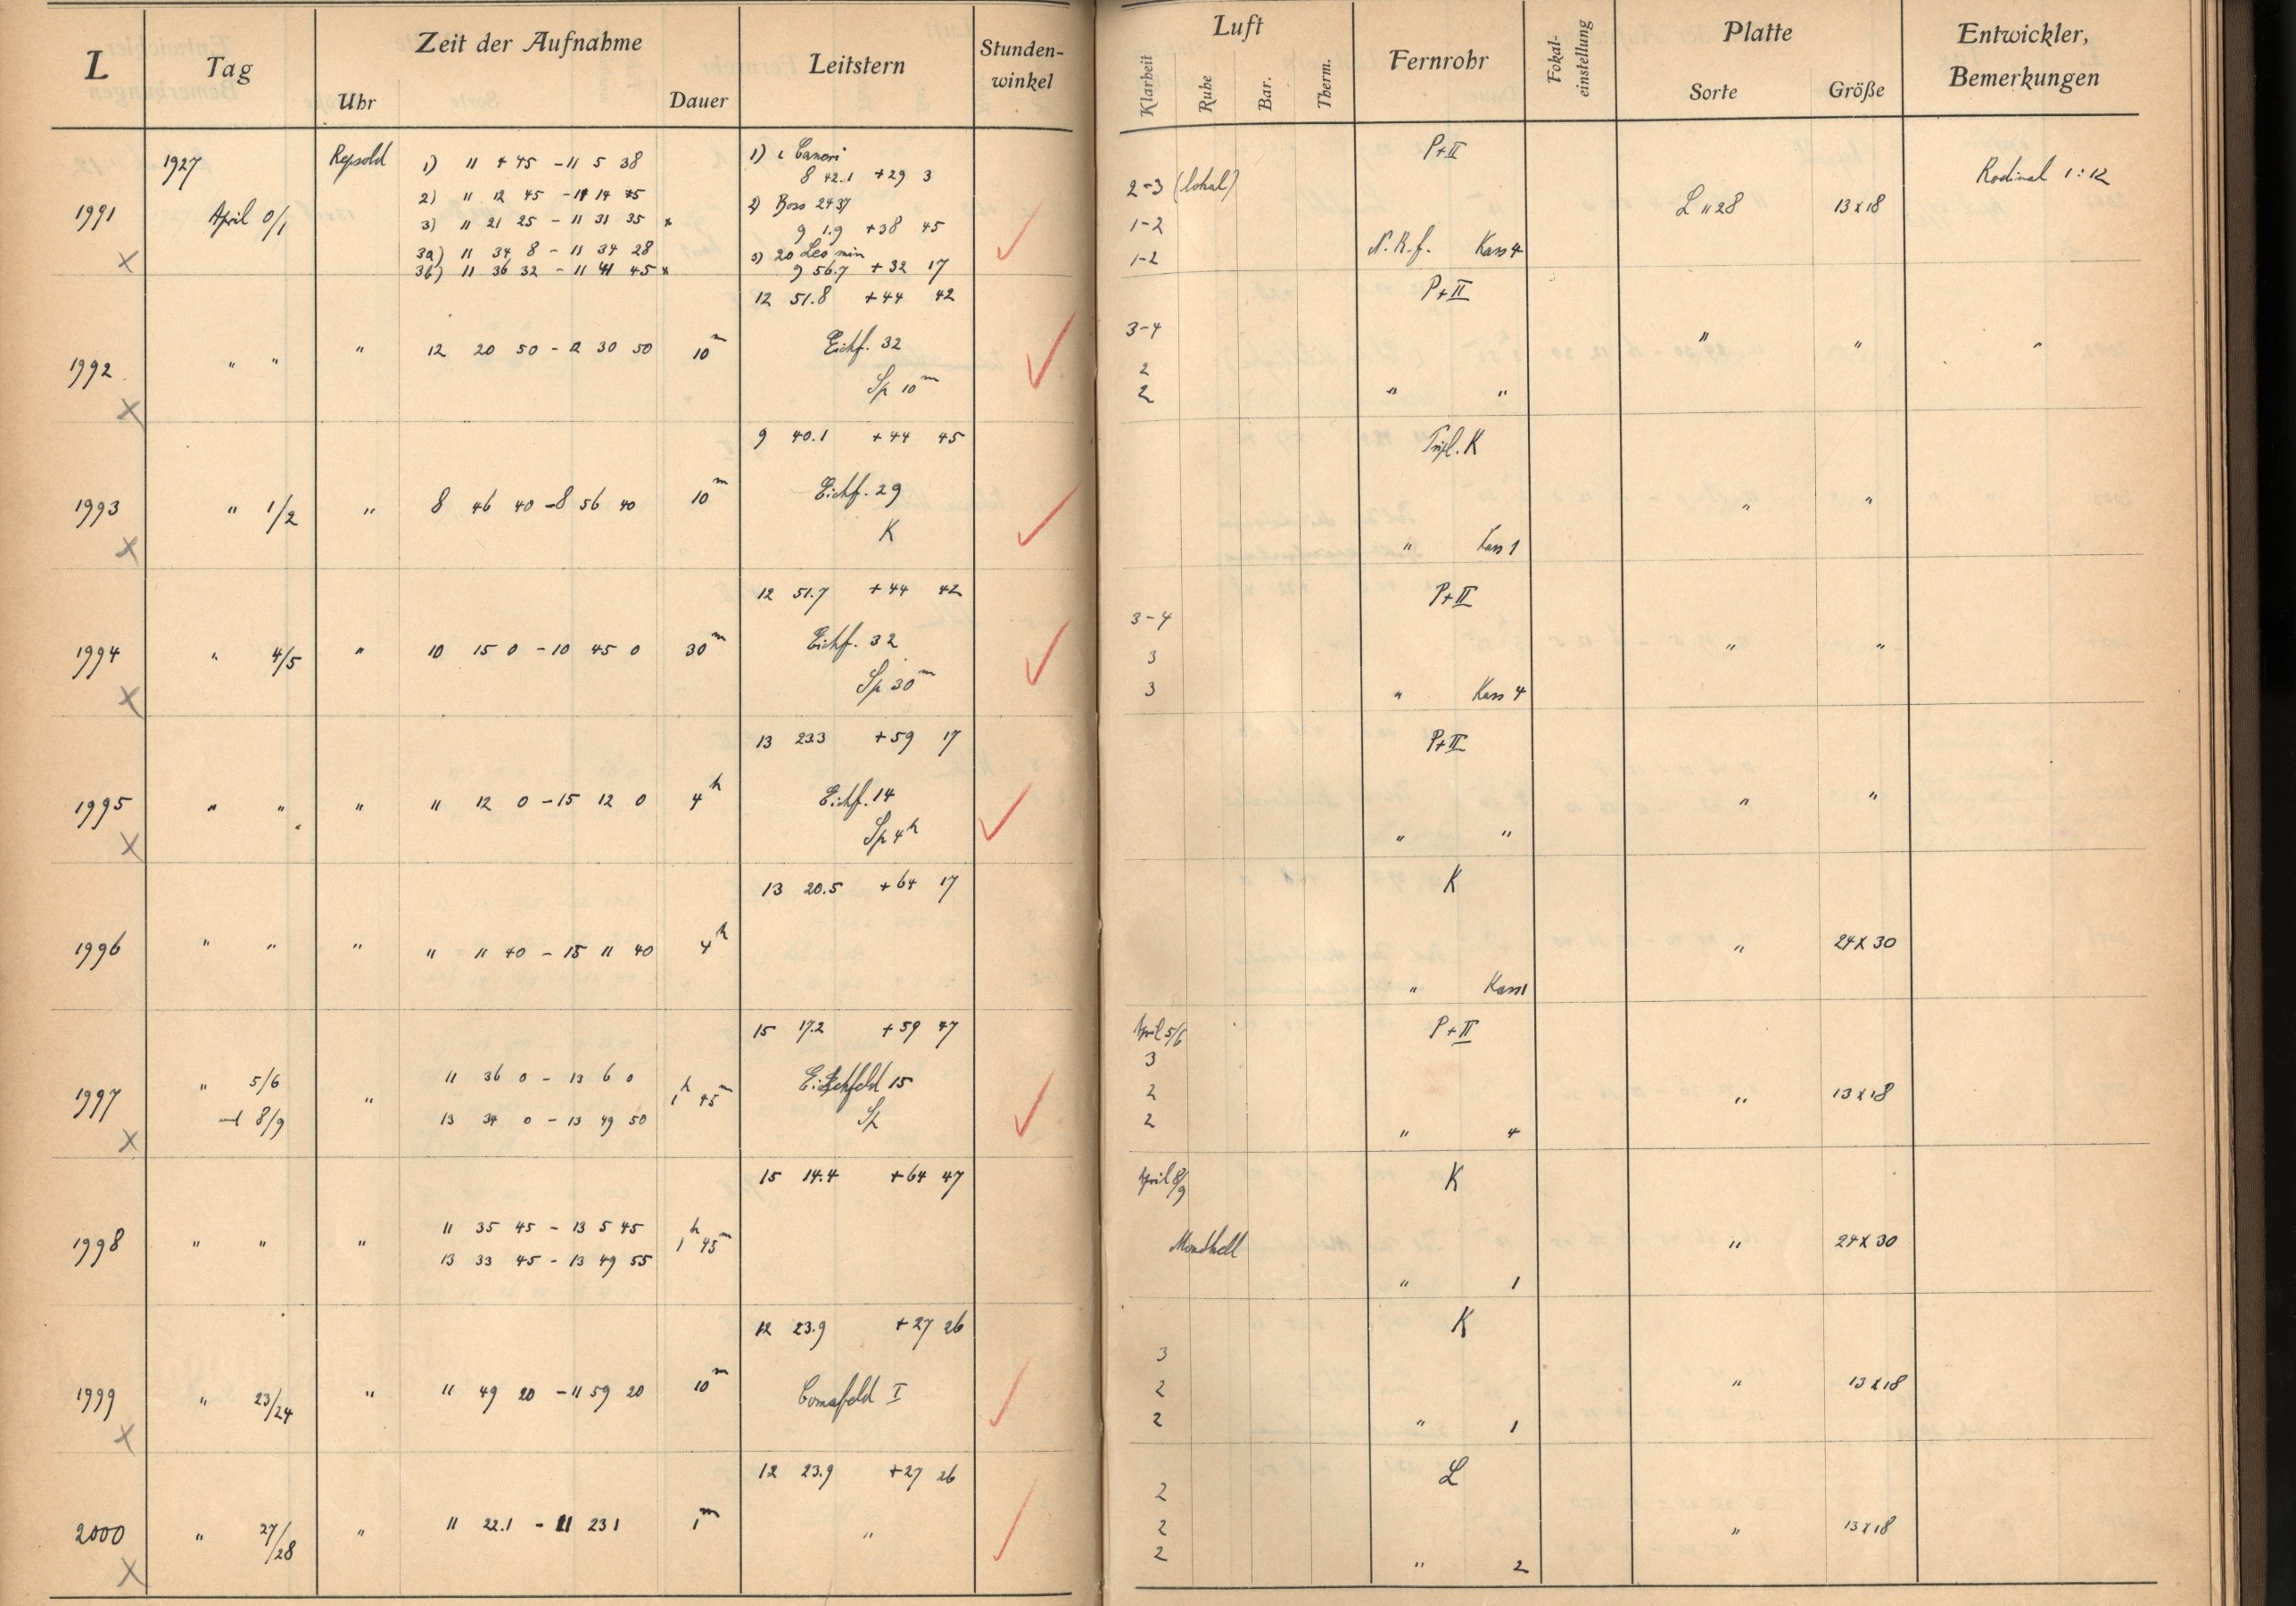 L Tag Zeit der Aufnahme Leitstern Stunden-winkel Luft Fernrohr Fokal-einstellung Platte Entwickler, Bemerkungen
Uhr Dauer Klarheit Ruhe Bar. Therm. Sorte Größe
1927 Repsold 1) 11 4 45 - 11 5 38 1) ι Cancri P+II
8 42.1 +29 3 2-3 (lokal) Rodinal 1:12
2) 11 12 45 - 11 14 45 2) Boss 2437
1991 April 0/1 3) 11 21 25 - 11 31 35 x 9 1.9 +38 45 1-2 L 1128 13x18
3a) 11 34 8 - 11 34 28 3) 20 Leo min N.R.f. Kass 4
X 3b) 11 36 32 - 11 41 45 x 9 56.7 +32 17 1-2
12 51.8 +44 42 P+II
3-4
1992 " " " 12 20 50 - 12 30 50 10m Eichf. 32 2 " " "
X Sp 10m 2 " "
9 40.1 +44 45 Tripl. K
1993 " 1/2 " 8 46 40 - 8 56 40 10m Eichf. 29 " "
X K " Kass 1
12 51.7 +44 42 P+II
3-4
1994 " 4/5 " 10 15 0 - 10 45 0 30m Eichf. 32 3 " "
X Sp 30m 3 " Kass 4
13 23.3 +59 17 P+II
1995 " " " 11 12 0 - 15 12 0 4h Eichf. 14 " "
X Sp 4h " "
13 20.5 +64 17 K
1996 " " " 11 11 40 - 15 11 40 4h " 24x30
" Kass 1
15 17.2 +59 47 April 5/6 P+II
" 5/6 11 36 0 - 13 6 0 3
1997 " 1h 45m Eichfeld 15 2 " 13x18
8/9 13 34 0 - 13 49 50 Sp 2
X " 4
15 14.4 +64 47 April 8/9 K
11 35 45 - 13 5 45
1998 " " " 1h 45m Mondhell " 24x30
13 33 45 - 13 49 55
" 1
12 23.9 +27 26 K
3
1999 " 23/24 " 11 49 20 - 11 59 20 10m Comafeld I 2 " 13x18
X 2 " 1
12 23.9 +27 26 L
2
2000 " 27/28 " 11 22.1 - 11 23 1 1m " 2 " 13x18
X 2 " 2